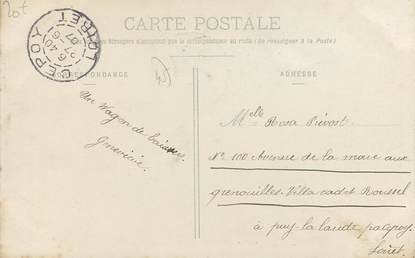 20€
CARTE POSTALE
Tous les pays étrangers n'acceptent pas la correspondance au recto (Se renseigner à la Poste)
CORRESPONDANCE
ADRESSE
LOIRET
6 40
27 -6
07
Un Wagon de baisers,
Geneviève.
Melle Rosa Prévost
N° 100 Avenue de la mare aux
grenouilles. Villa cadet Roussel
à puy-la-laude
Loiret.